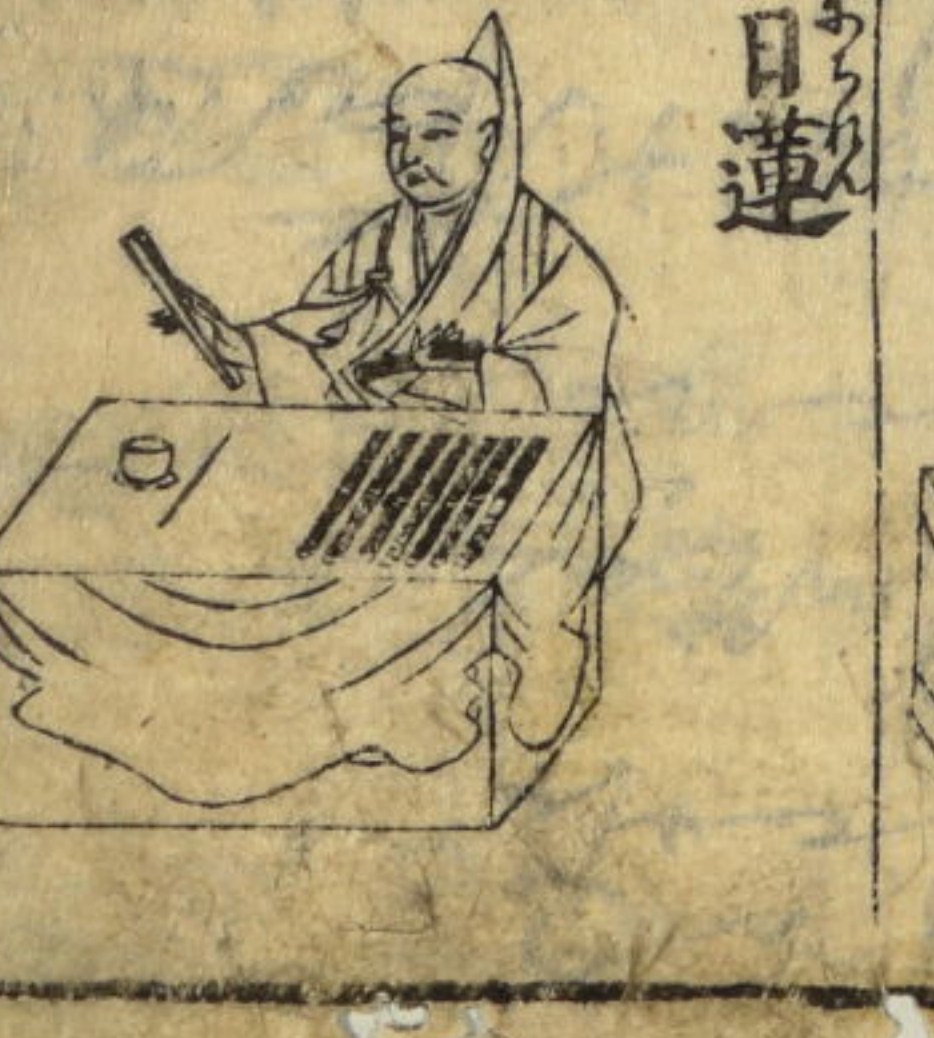 日蓮
にちれん